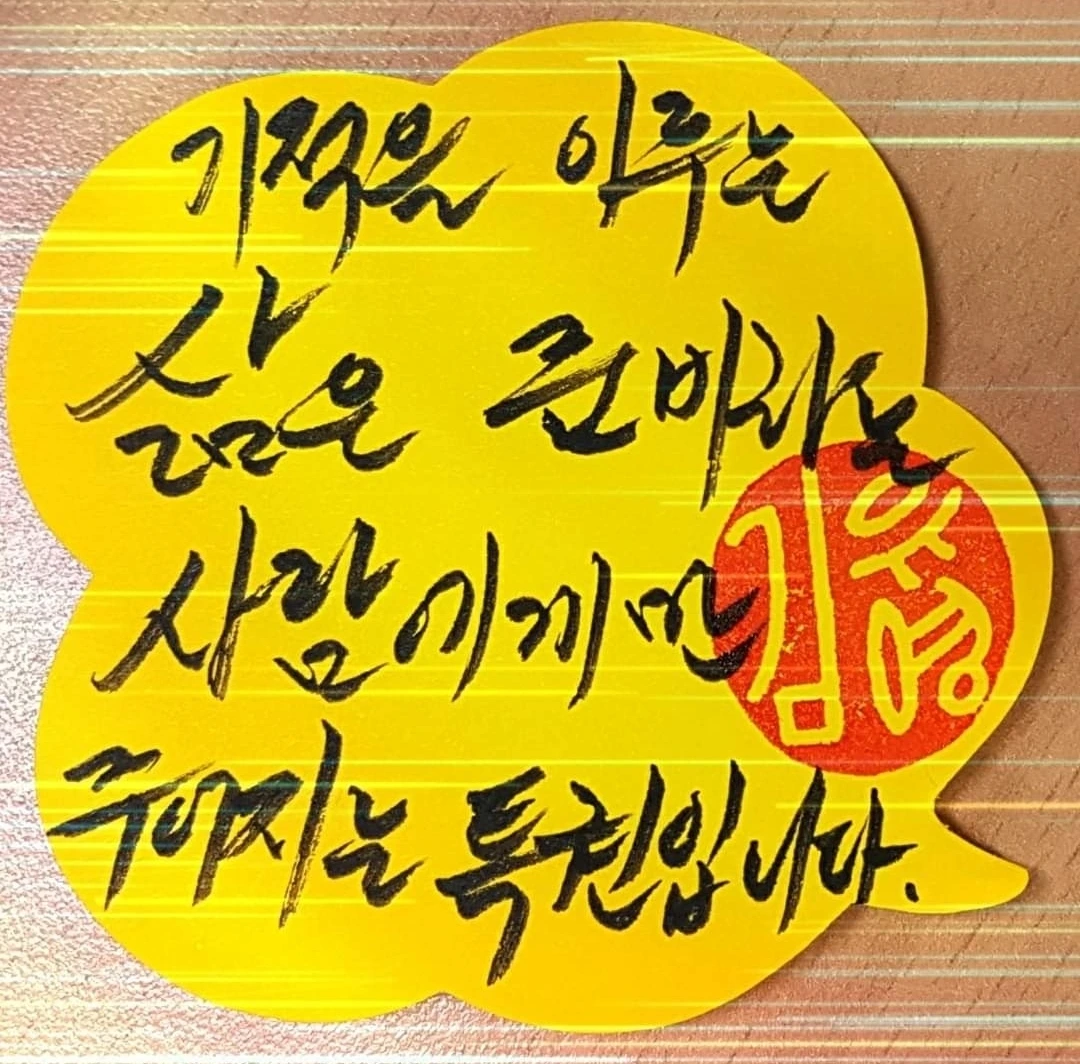 기적을 이루는
삶은 준비하는
사람에게만
주어지는 특권입니다.
김